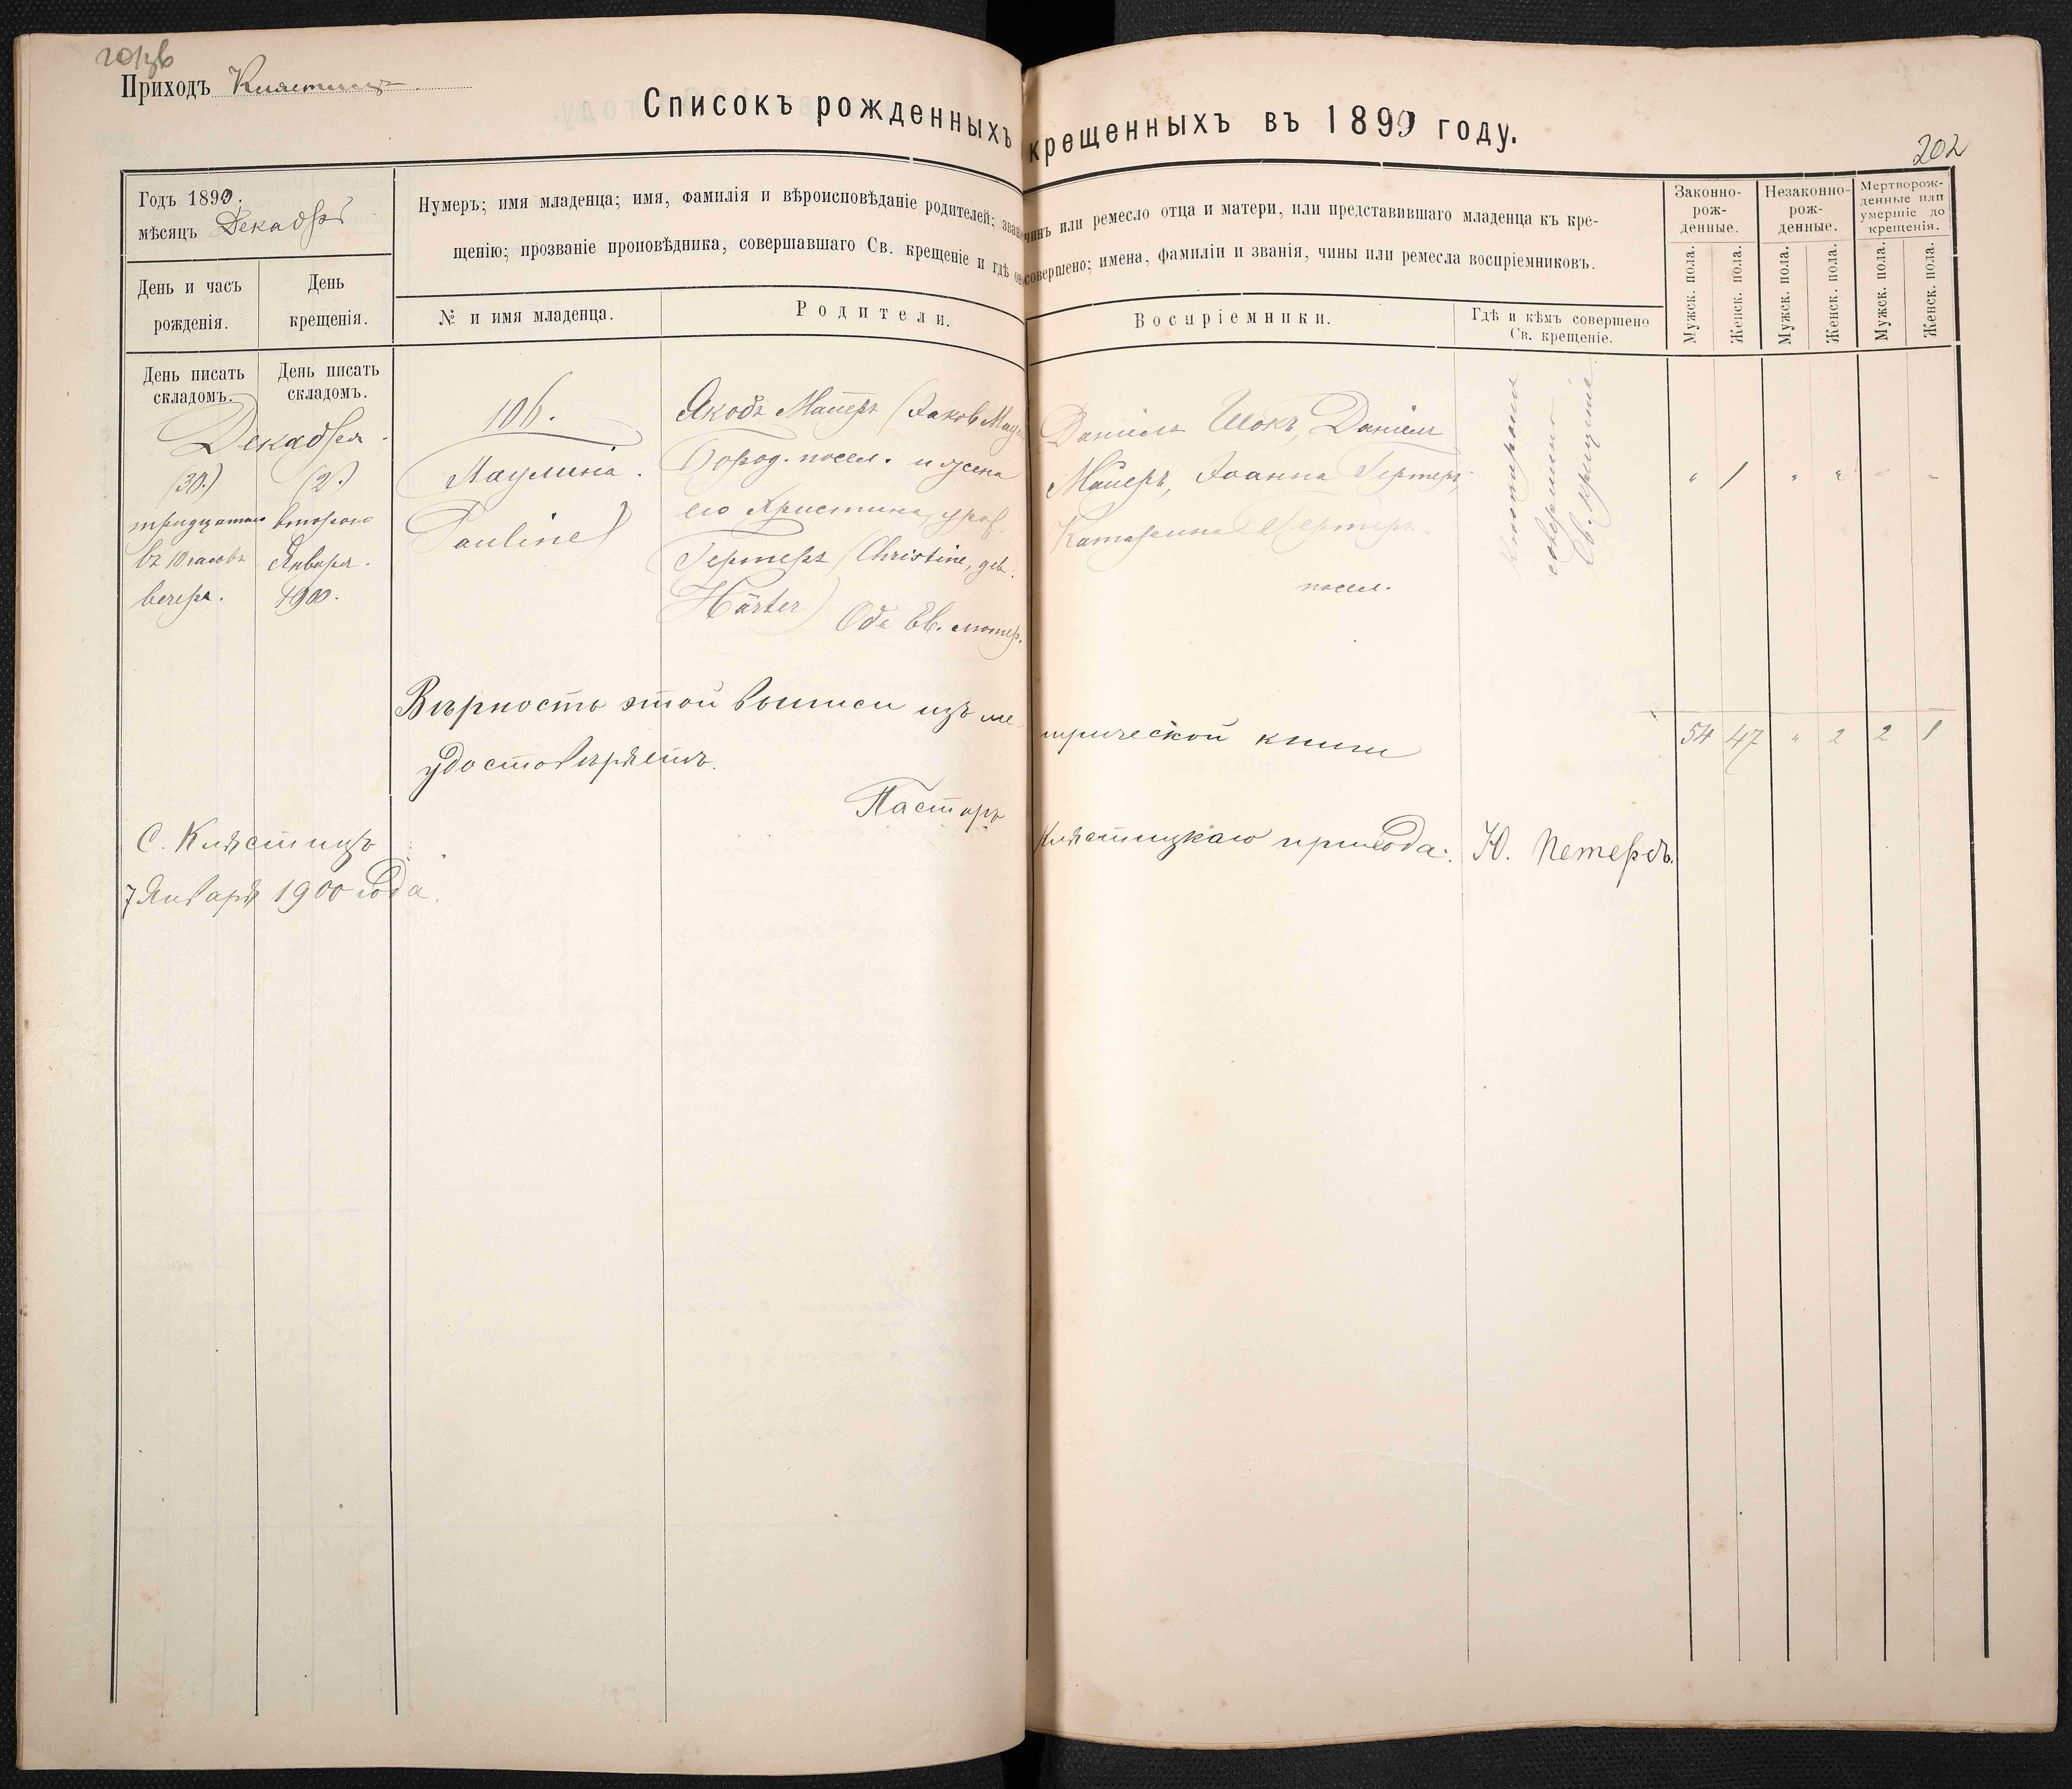 Приходъ
Списокъ рожденныхъ крещенныхъ въ 1899 году.
202
Годъ 1899.
мѣсяцъ Декабрь
Нумеръ; имя младенца; имя, фамилія и вѣроисповѣданіе родителей; чинъ или ремесло отца и матери, или представившаго младенца къ кре-
щенію; прозваніе проповѣдника, совершавшаго Св. крещеніе и гдѣ совершено; имена, фамиліи и званія, чины или ремесла воспріемниковъ.
День и часъ
рожденія.
День
крещенія.
№ и имя младенца.
Родители.
Воспріемники.
Гдѣ и кѣмъ совершено
Св. крещеніе.
Законно-
рож-
денные.
Незаконно-
рож-
денные.
Мертворож-
денные или
умершіе до
крещенія.
Мужск. пола.
Женск. пола.
Мужск. пола.
Женск. пола.
Мужск. пола.
Женск. пола.
День писать
складомъ.
День писать
складомъ.
Декабря.
(30.)
тридцатаго
въ 10 часовъ
вечера.
(2.)
втораго
Января.
1900.
106.
Паулина.
Pauline)
Якобъ Майеръ (Jakob
Бород. посел. и жена
его Христина, урож.
Гертеръ (Christine, geb.
Härter) Оба Ев. лютер.
Даніилъ Шокъ, Даніилъ
Майеръ, Іоанна Гертеръ,
Катарина Гертеръ
посел.
совершено
Св. крещеніе
" 1 " " " "
Вѣрность этой выписи изъ метрической книги
удостовѣряетъ.
54 47 " 2 2 1
Пасторъ Клѣстицкаго прихода: Ю. Петерсъ.
С. Клѣстицъ
7 Января 1900 года.